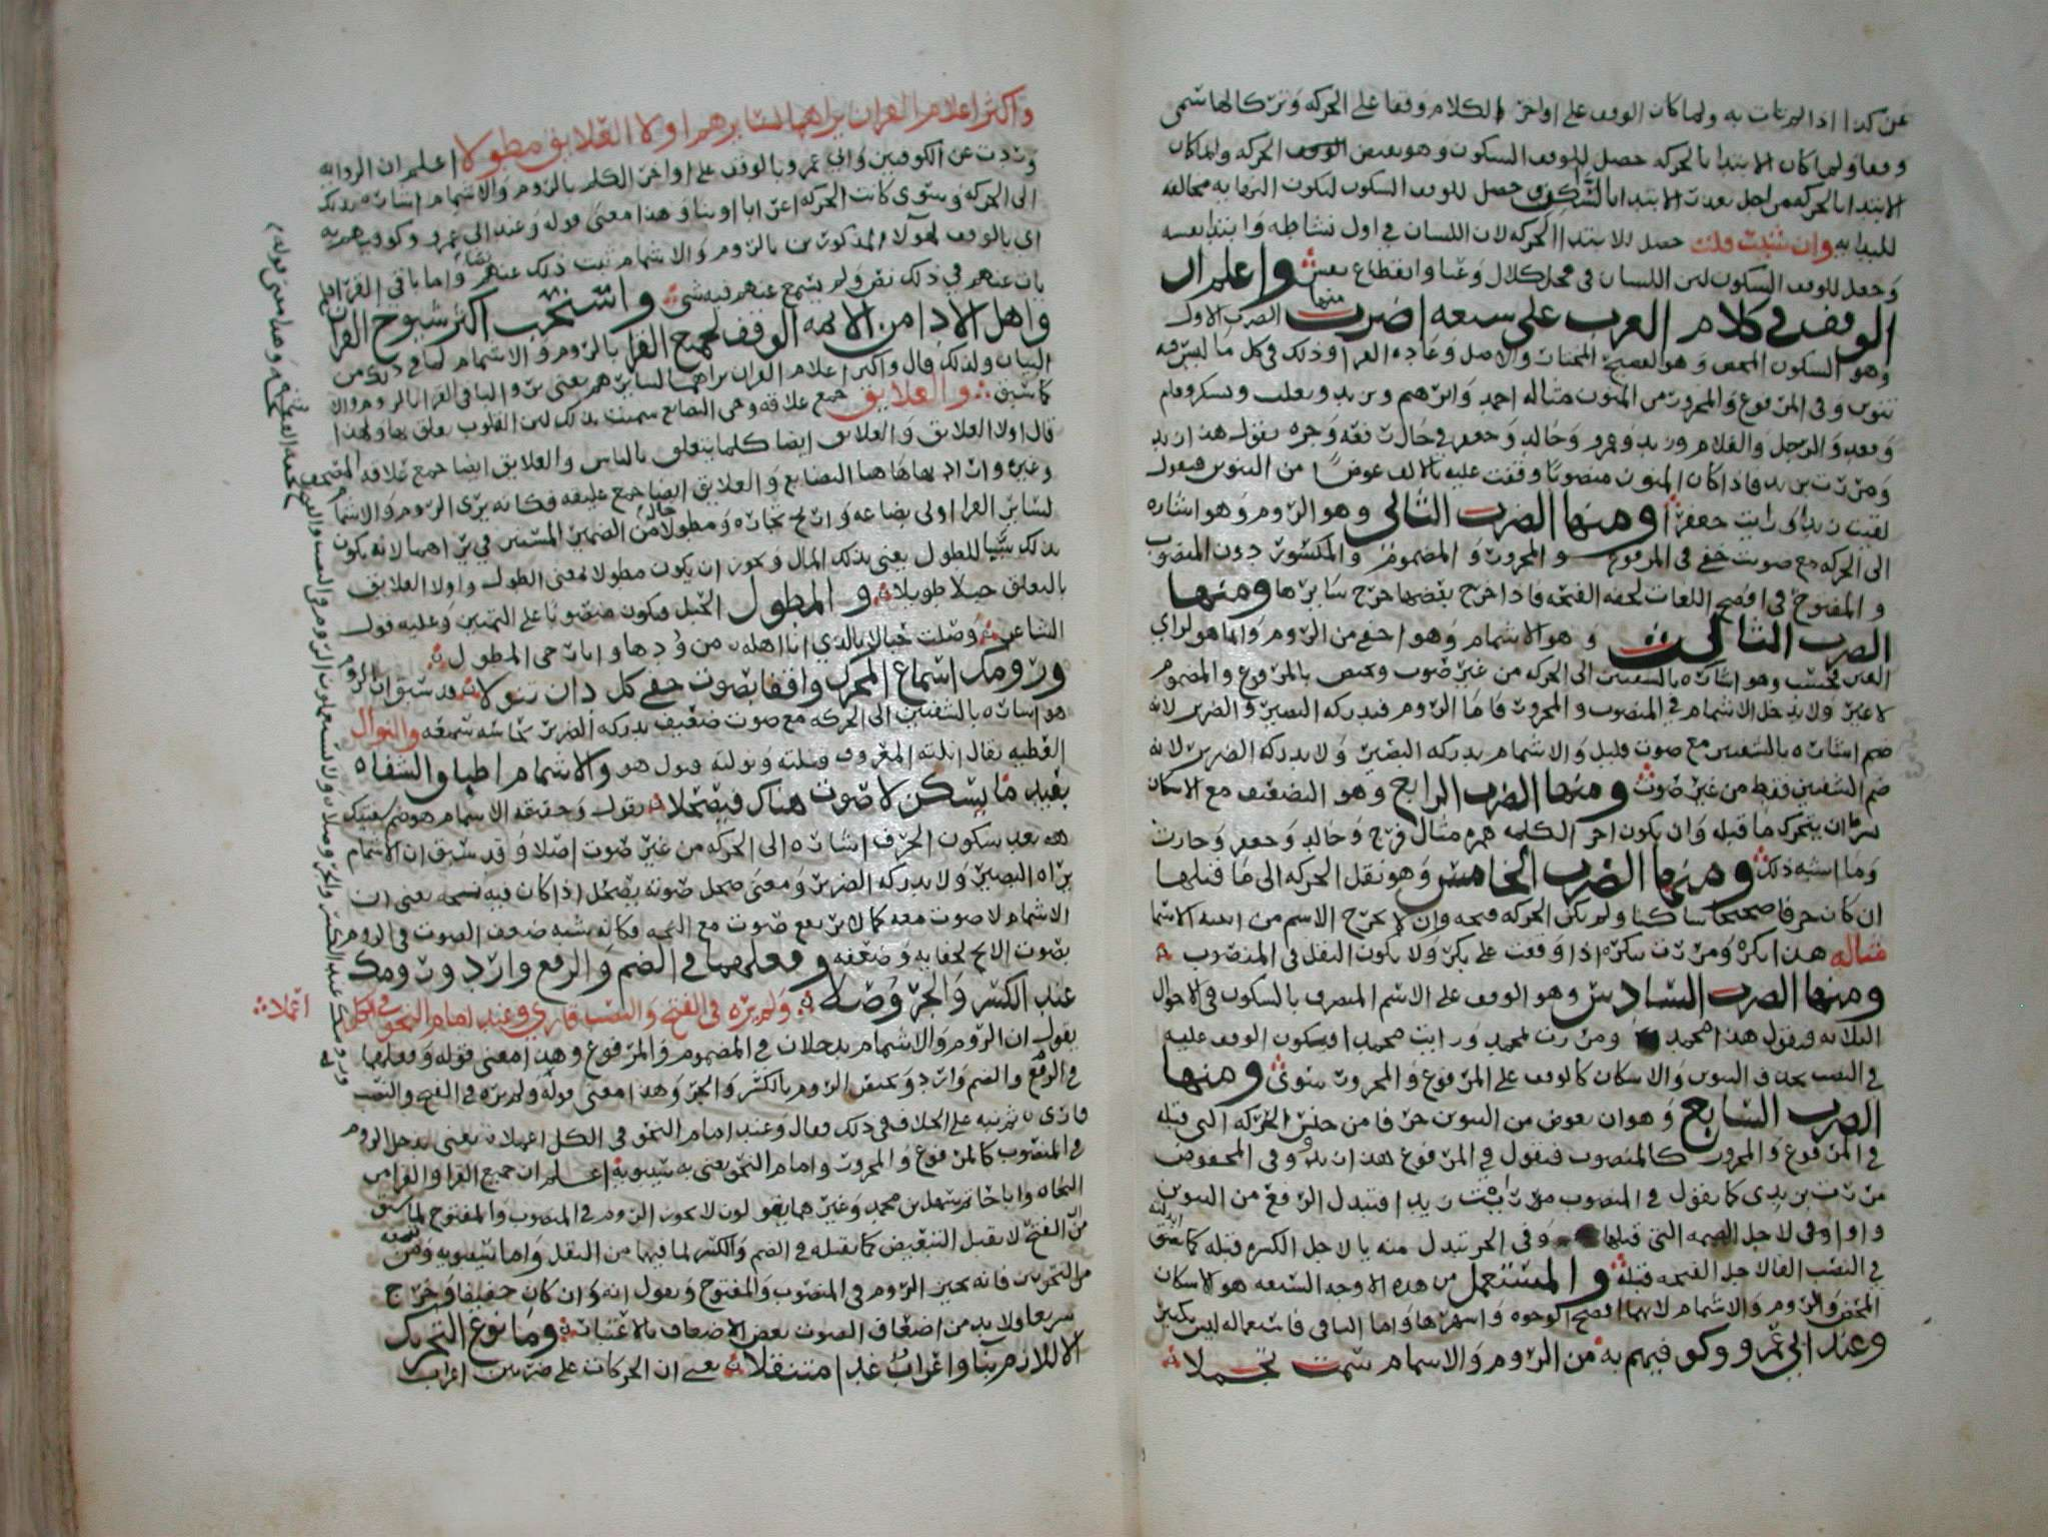 عن كذا اذا لم تات به ولما كان الوقف على اواخر الكلام وقفا على الحركة وتركا لها سمى
وقفا ولما كان الابتدا بالحركه حصل للوقف السكون وهو نقيض الوقف الحركه ولما كان
الابتدا بالحركه من اجل تعذر الابتدا بالسكون حصل للوقف السكون ليكون الترها به مخالفه
للبدا به وان شئت قلت حصل للابتدا الحركه لان اللسان في اول نشاطه وابتدا نفسه
وجعل للوقف السكون لان اللسان في محل كلال وعيا وانقطاع نفس واعلم ان
الوقف في كلام العرب على سبعه اضرب منها الضرب الاول
وهو السكون المحض وهو الفصيح المختار والاصل وعاده القرا وذلك في كل ما ليس فيه
تنوين وفي المرفوع والمجرور من المنون مثاله احمد وابرهيم ويزيد وتغلب ويشكر وقام
وقعد والرجل والغلام وزيد وعمرو وخالد وجعفر في حال رفعه وجره تقول هذا زيد
ومررت بزيد فاذا كان المنون منصوبا وقفت عليه بالالف عوضا من التنوين فتقول
لقيت زيدا ورايت جعفرا ومنها الضرب الثاني وهو الروم وهو اشاره
الى الحركه مع صوت خفي في المرفوع والمجرور والمضموم والمكسور دون المنصوب
والمفتوح في افصح اللغات لخفه الفتحه فاذا خرج بعضها خرج سايرها ومنها
الضرب الثالث وهو الاشمام وهو اخفى من الروم وانما هو لراي
العين فحسب وهو اشاره بالشفتين الى الحركه من غير صوت ويختص بالمرفوع والمضموم
لا غير ولا يدخل الاشمام في المنصوب والمجرور فاما الروم فيدركه البصير والضرير لانه
ضم اشاره بالشفتين مع صوت قليل والاشمام يدركه البصير ولا يدركه الضرير لانه
ضم الشفتين فقط من غير صوت ومنها الضرب الرابع وهو التضعيف مع الاسكان
شرط ان يتحرك ما قبله وان يكون اخر الكلمه هم مثال فرج وخالد وجعفر وحارث
وما اشبه ذلك ومنها الضرب الخامس وهو نقل الحركه الى ما قبلها
ان كان حرفا صحيحا ساكنا ولم يكن الحركه فتحه وان لا يخرج الاسم من ابنيه الاسما
مثاله هذا بكر ومررت ببكر اذا وقفت على بكر ولا يكون النقل في المنصوب
ومنها الضرب السادس وهو الوقف على الاسم المنصرف بالسكون في الاحوال
الثلاثه فيقول هذا محمد ومررت بمحمد ورايت محمد فيكون الوقف عليه
في النصب بحذف التنوين والاسكان كالوقف على المرفوع والمجرور بتنوين ومنها
الضرب السابع وهو ان يعوض من التنوين حرفا من جنس الحركه التي قبله
في المرفوع والمجرور كالمنصوب فتقول في المرفوع هذا زيدو وفي المخفوض
مررت بزيدي كما يقول في المنصوب رايت زيدا فتبدل الرفع من التنوين
واوا وفي لاجل الضمه التي قبلها وفي الجر تبدل منه يا لاجل الكسره قبله كما
في النصب الفا لاجل الفتحه قبله والمستعمل من هذه الاوجه السبعه هو الاسكان
المحض والروم والاشمام لانهما افصح الوجوه واشهرها واما الباقي فاستعماله ليس بكثير
وعند ابي عمرو وكوفيهم به من الروم والاشمام سمت تجملا
واكثر اعلام القران يراهما لسايرهم اولا العلايق مطولا اعلم ان الروايه
وردت عن الكوفيين وابي عمرو بالوقف على اواخر الكلم بالروم والاشمام اشاره بذلك
الى الحركه وسوى كانت الحركه اعرابا او بنا وهذا معنى قوله وعند ابي عمرو وكوفيهم به
اي بالوقف لهولاء المذكورين بالروم والاشمام ثبت ذلك عنهم نصا واما باقي القرا فلم
يات عنهم في ذلك نص ولم يسمع عنهم فيه شي واستحب اكثر شيوخ القران
واهل الادا من الايمه الوقف لجميع القرا بالروم والاشمام لما في ذلك من
البيان ولذلك قال واكثر اعلام القران يراهما لسايرهم يعني يرو والباقي القرا بالروم والا
كما سبق والعلايق جمع علاقه وهي البضايع سميت بذلك لان القلوب تعلق بها ولهذا
قال اولا العلايق والعلايق ايضا كلما يتعلق بالناس والعلايق ايضا جمع علاقه المصحف
وغيره واراد بها هاهنا البضايع والعلايق ايضا جمع عليقه فكانه يرى الروم والاشمام
لساير القرا اولى بضاعه واربح تجاره ومطولا حال من الضمير المستتر في يراهما لانه يكون
بذلك سببا للطول يعني بذلك المال ويجوز ان يكون مطولا لمعنى الطول واولا العلايق
بالتعلق حبلا طويلا والمطول الحبل فيكون منصوبا على التمييز وعليه قول
الشاعر وصلت حبالا بالذي انا اهله من ودها واباحي المطول
ورومك اسماع المحرك واقفا بصوت خفي كل دان تنولا قد سبق ان الروم
هو اشاره بالشفتين الى الحركه مع صوت ضعيف يدركه الضرير بحاسه سمعه والنوال
العطيه يقال انلته المعروف ونلته ونولته قبول هو والاشمام اطباق الشفاه
بعيد ما يسكن لا صوت هناك فيصحلا يقول وحقيقه الاشمام هو ضم شفتيك
هه بعد سكون الحرف اشاره الى الحركه من غير صوت اصلا وقد سبق ان الاشمام
يراه البصير ولا يدركه الضرير ومعنى صحل صوته يصحل اذا كان فيه بحه يعني ان
الاشمام لا صوت معه كما لا يرتفع صوت مع البحه فكانه شبه ضعف الصوت في الروم
بصوت الابح لخفايه وضعفه وفعلهما في الضم والرفع وارد ورومك
عند الكسر والجر وصلا ولم يره في الفتح والنصب قاري وعند امام النحو في الكل اعملا
يقول ان الروم والاشمام يدخلان في المضموم والمرفوع وهذا معنى قوله وفعلهما
في الرفع والضم وارد ويختص الروم بالكسر والجر وهذا معنى قوله ولم يره في الفتح والنصب
قاري ثم نبه على الخلاف في ذلك فقال وعند امام النحو في الكل اعملا يعني يدخل الروم
في المنصوب كالمرفوع والمجرور وامام النحو يعني به سيبويه اعلم ان جميع القرا والفرا من
النحاه وابا حاتم سهل بن محمد وغيرهما يقولون لا يجوز الروم في المنصوب والمفتوح لما سبق
من ان الفتح لا يقبل التبعيض كما تقبله في الضم والكسر لما فيهما من الثقل واما سيبويه ومن
من النحويين فانه يجيز الروم في المنصوب والمفتوح ويقول انه وان كان خفيفا وخرج
سريعا ولا بد من اضعاف الصوت بعض الاضعاف بالاعتبار وما نوع التحريك
الا للازم بنا واعراب غدا متنقلا يعني ان الحركات على ضربين اعراب